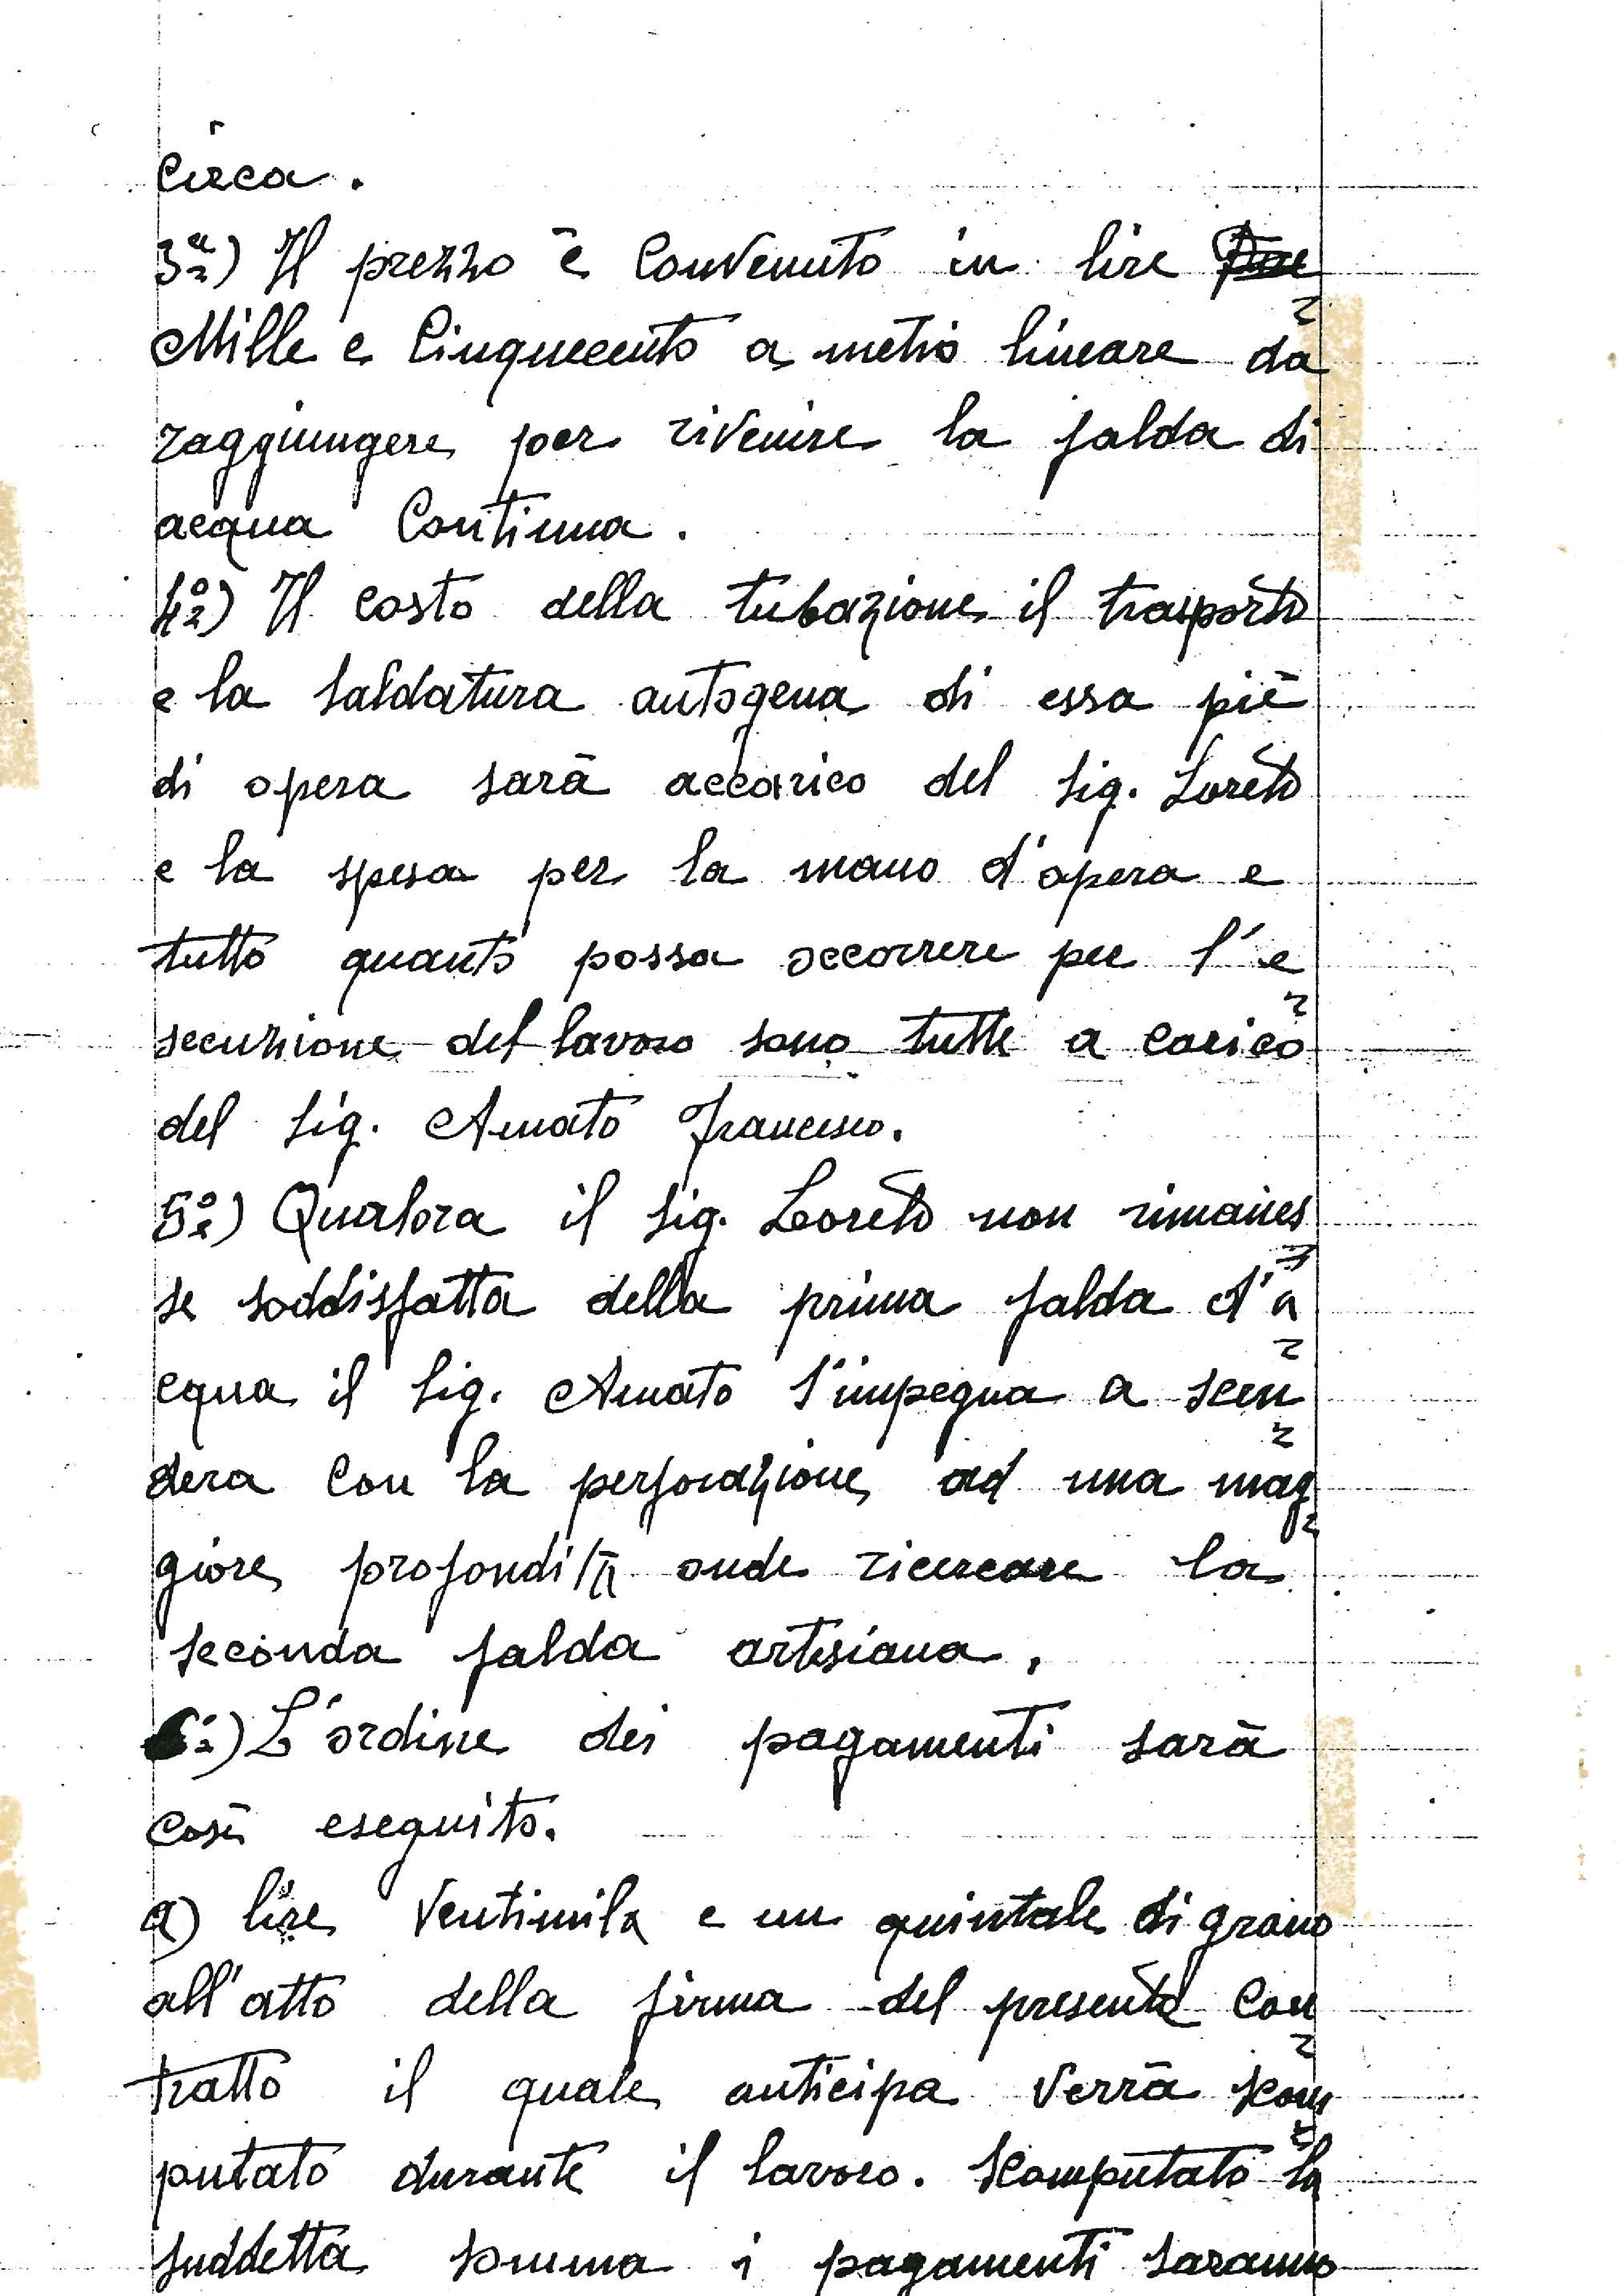 Circa.
3ª) Il prezzo è Convenuto in lire
Mille e Cinquecento a metro lineare da
raggiungere per rivenire la falda di
acqua Continua.
4º) Il costo della tubazione il trasporto
e la saldatura autogena di essa piè
di opera sarà accarico del Sig. Loreto
e la spesa per la mano d'opera e
tutto quanto possa occorrere per l'e
secuzione del lavoro sono tutte a carico
del Sig. Amato Francesco.
5º) Qualora il Sig. Loreto non rimanes
se soddisfatta della prima falda d'a
cqua il Sig. Amato s'impegna a scen
dera con la perforazione ad una mag
giore profondità onde ricercare la
seconda falda artesiana.
6º) L'ordine dei pagamenti sarà
così eseguito.
a) lire Ventimila e un quintale di grano
all'atto della firma del presente Con
tratto il quale anticipa verrà scom
putato durante il lavoro. Scomputato la
suddetta somma i pagamenti saranno